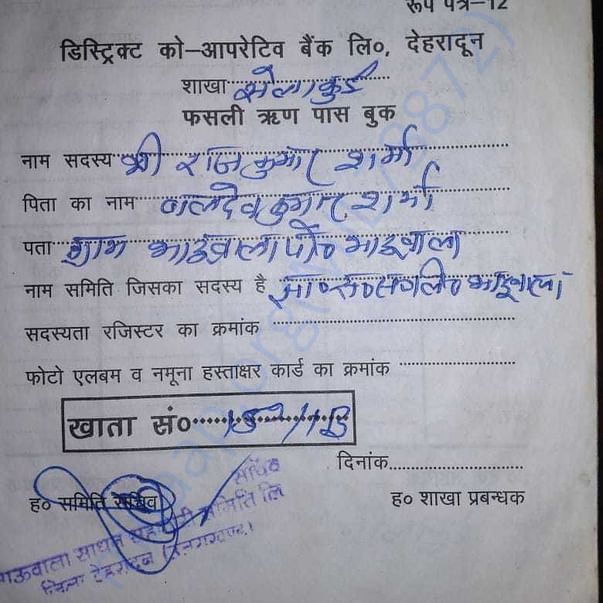 रूप पत्र-12
डिस्ट्रिक्ट को-आपरेटिव बैंक लि०, देहरादून
शाखा सेलाकुई
फसली ऋण पास बुक
नाम सदस्य श्री राजकुमार शर्मा
पिता का नाम बालदेव कुमार शर्मा
पता ग्राम भाऊवाला पो० भाऊवाला
नाम समिति जिसका सदस्य है सा०स०स०लि० भाऊवाला
सदस्यता रजिस्टर का क्रमांक
फोटो एलबम व नमूना हस्ताक्षर कार्ड का क्रमांक
खाता सं०
दिनांक
ह० समिति सचिव
ह० शाखा प्रबन्धक
सचिव
भाऊवाला साधन सहकारी समिति लि
जिला देहरादून (उत्तराखण्ड)